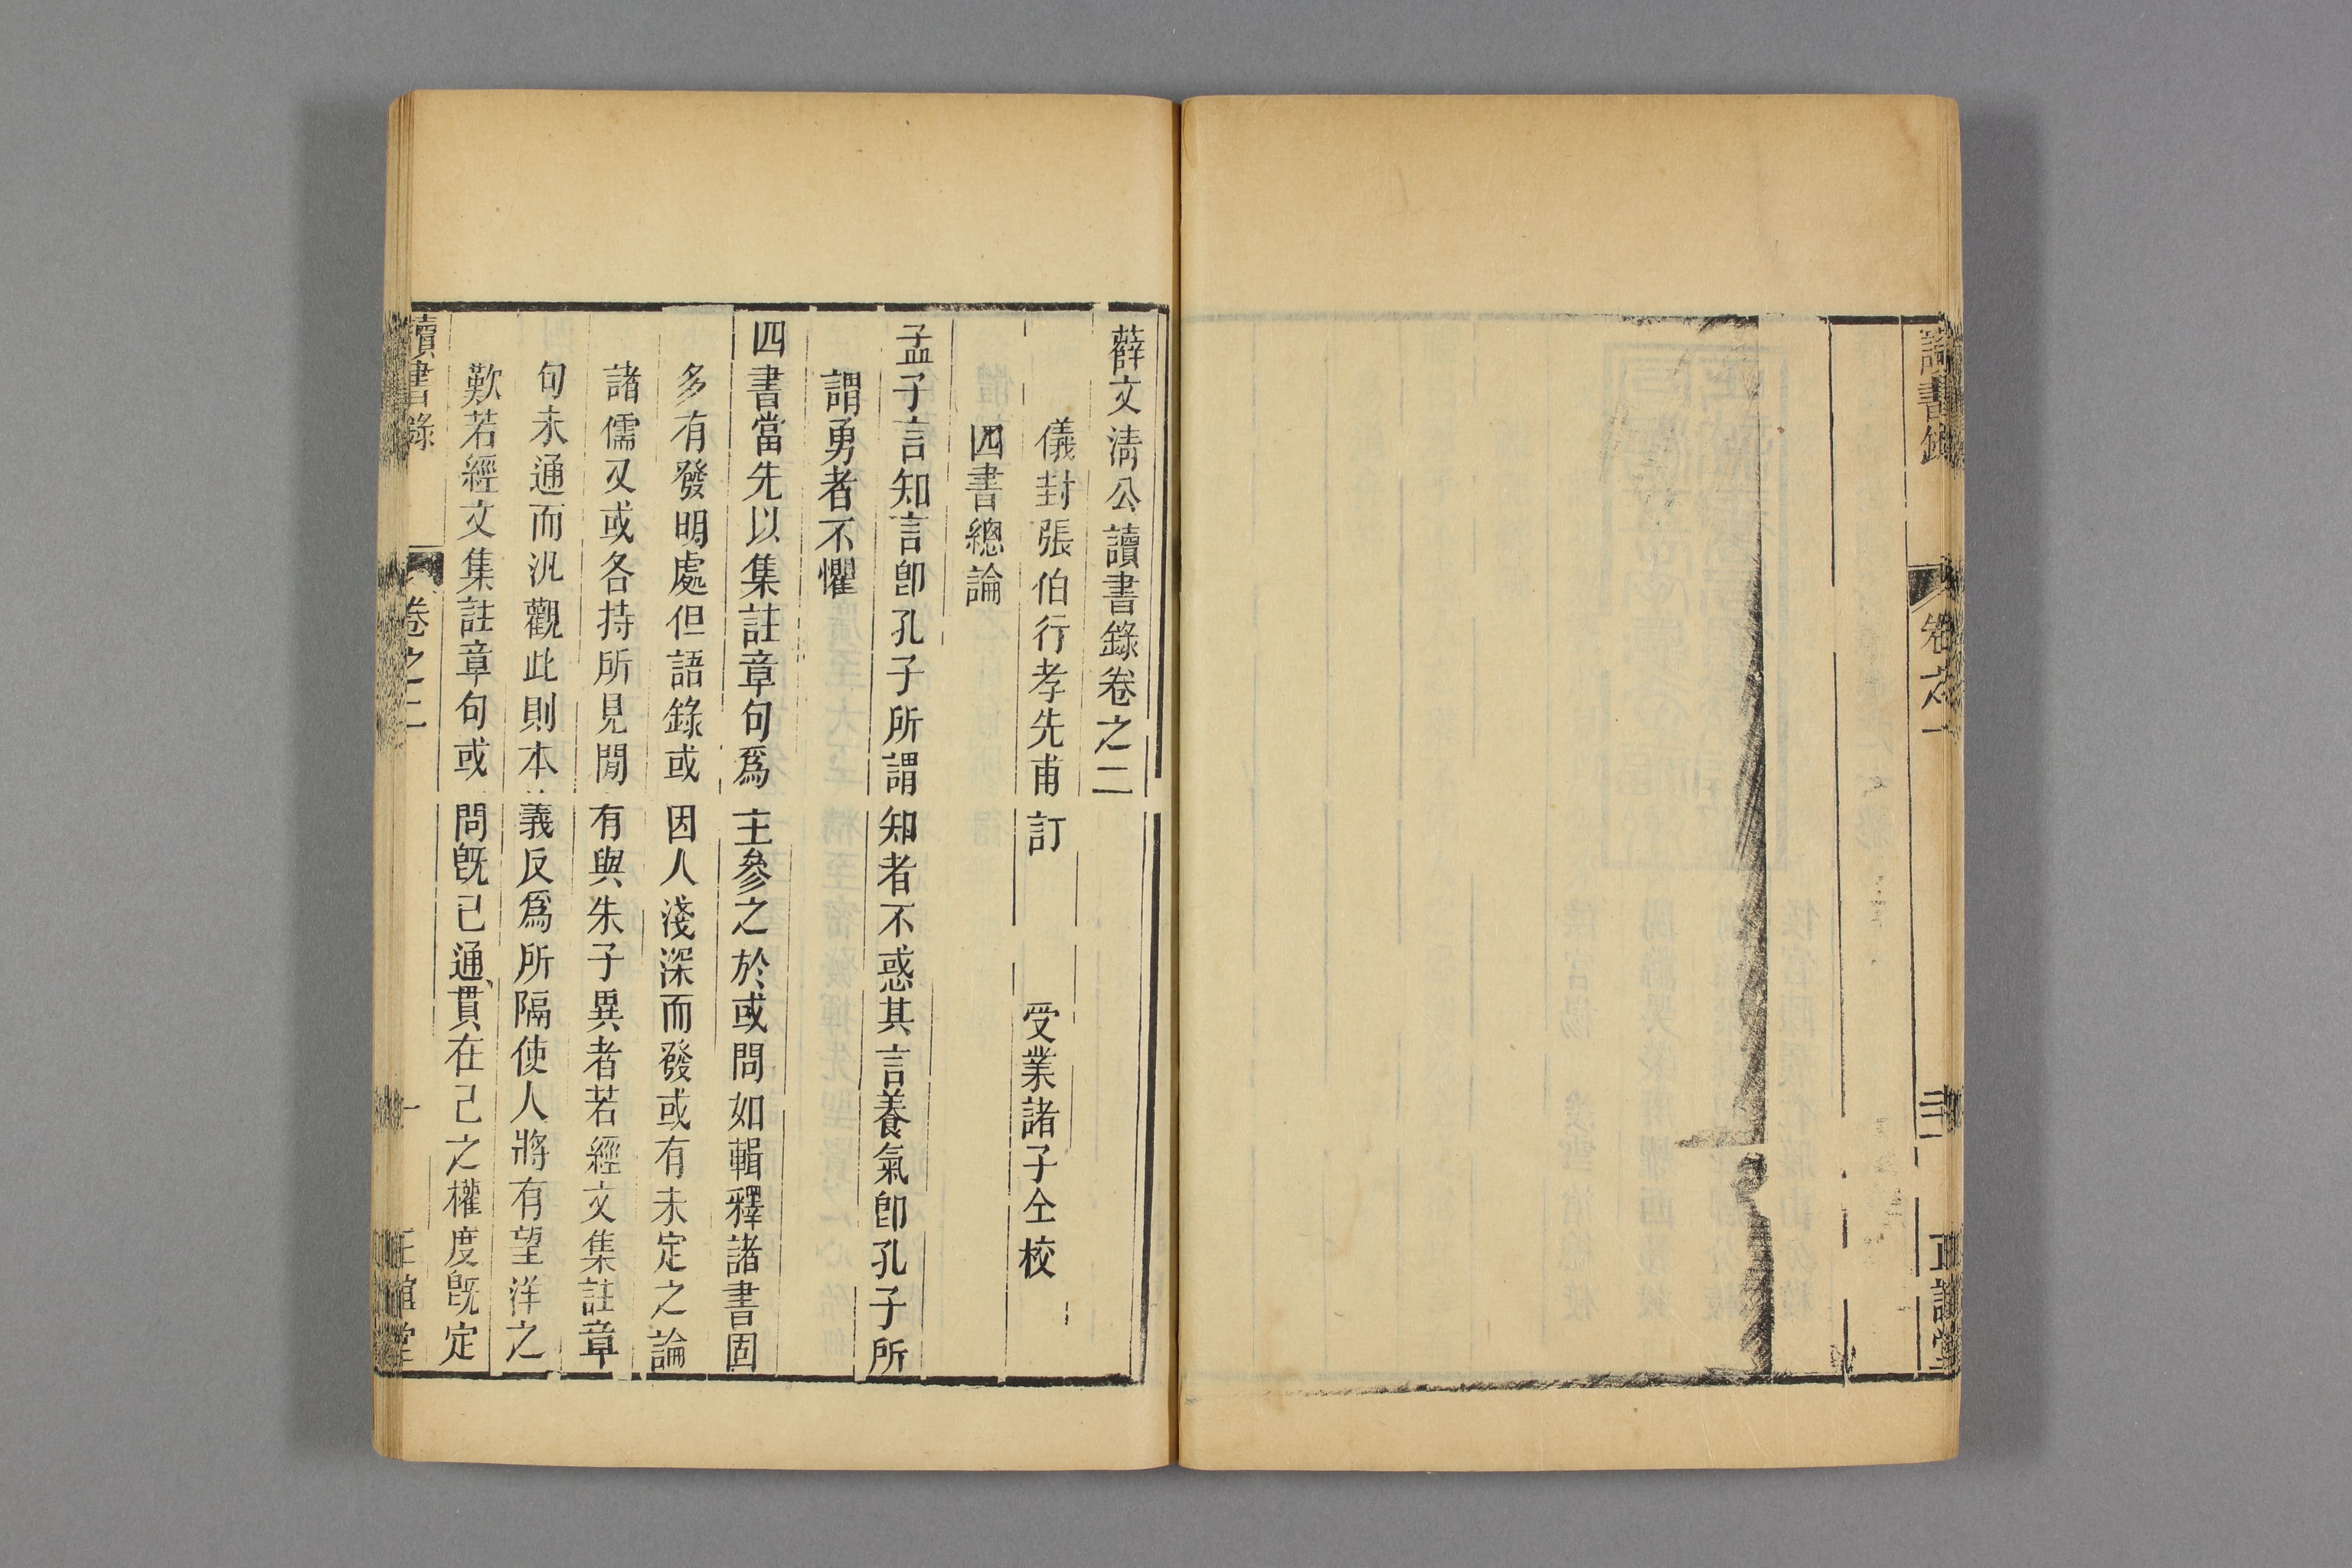 讀書錄
卷之一
正誼堂
薛文清公讀書錄卷之二
儀封張伯行孝先甫訂　受業諸子仝校
四書總論
孟子言知言卽孔子所謂知者不惑其言養氣卽孔子所
謂勇者不懼
四書當先以集註章句爲主參之於或問如輯釋諸書固
多有發明處但語錄或因人淺深而發或有未定之論
諸儒又或各持所見閒有與朱子異者若經文集註章
句未通而汎觀此則本義反爲所隔使人將有望洋之
歎若經文集註章句或問旣已通貫在己之權度旣定
讀書錄
卷之二
一
正誼堂